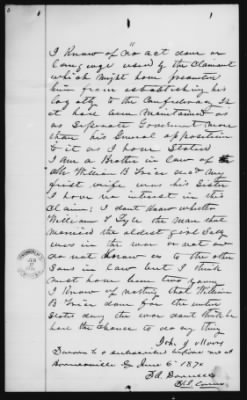 I Know of no act done or
language used by the Claimant
which might have prevented
him from establishing his
loyalty to the Confederacy
it have been maintained as
a Seperate Government more
than his General opposition
to it as I have Stated
I am a Brother in law of
Mr William B my
first wife was his Sister
I have no interest in this
Claim; I dont know whether
William T Lyle the man that
married the oldest girl Sally
was in the war or not nor
do not know as to the other
Sons in law but I think
must have been two young
I know of nothing that William
B done for the united
States during the war dont think he
have the chance to do any thing
Jos. J
Sworn to & subscribed before me at
Ga June 6 1870